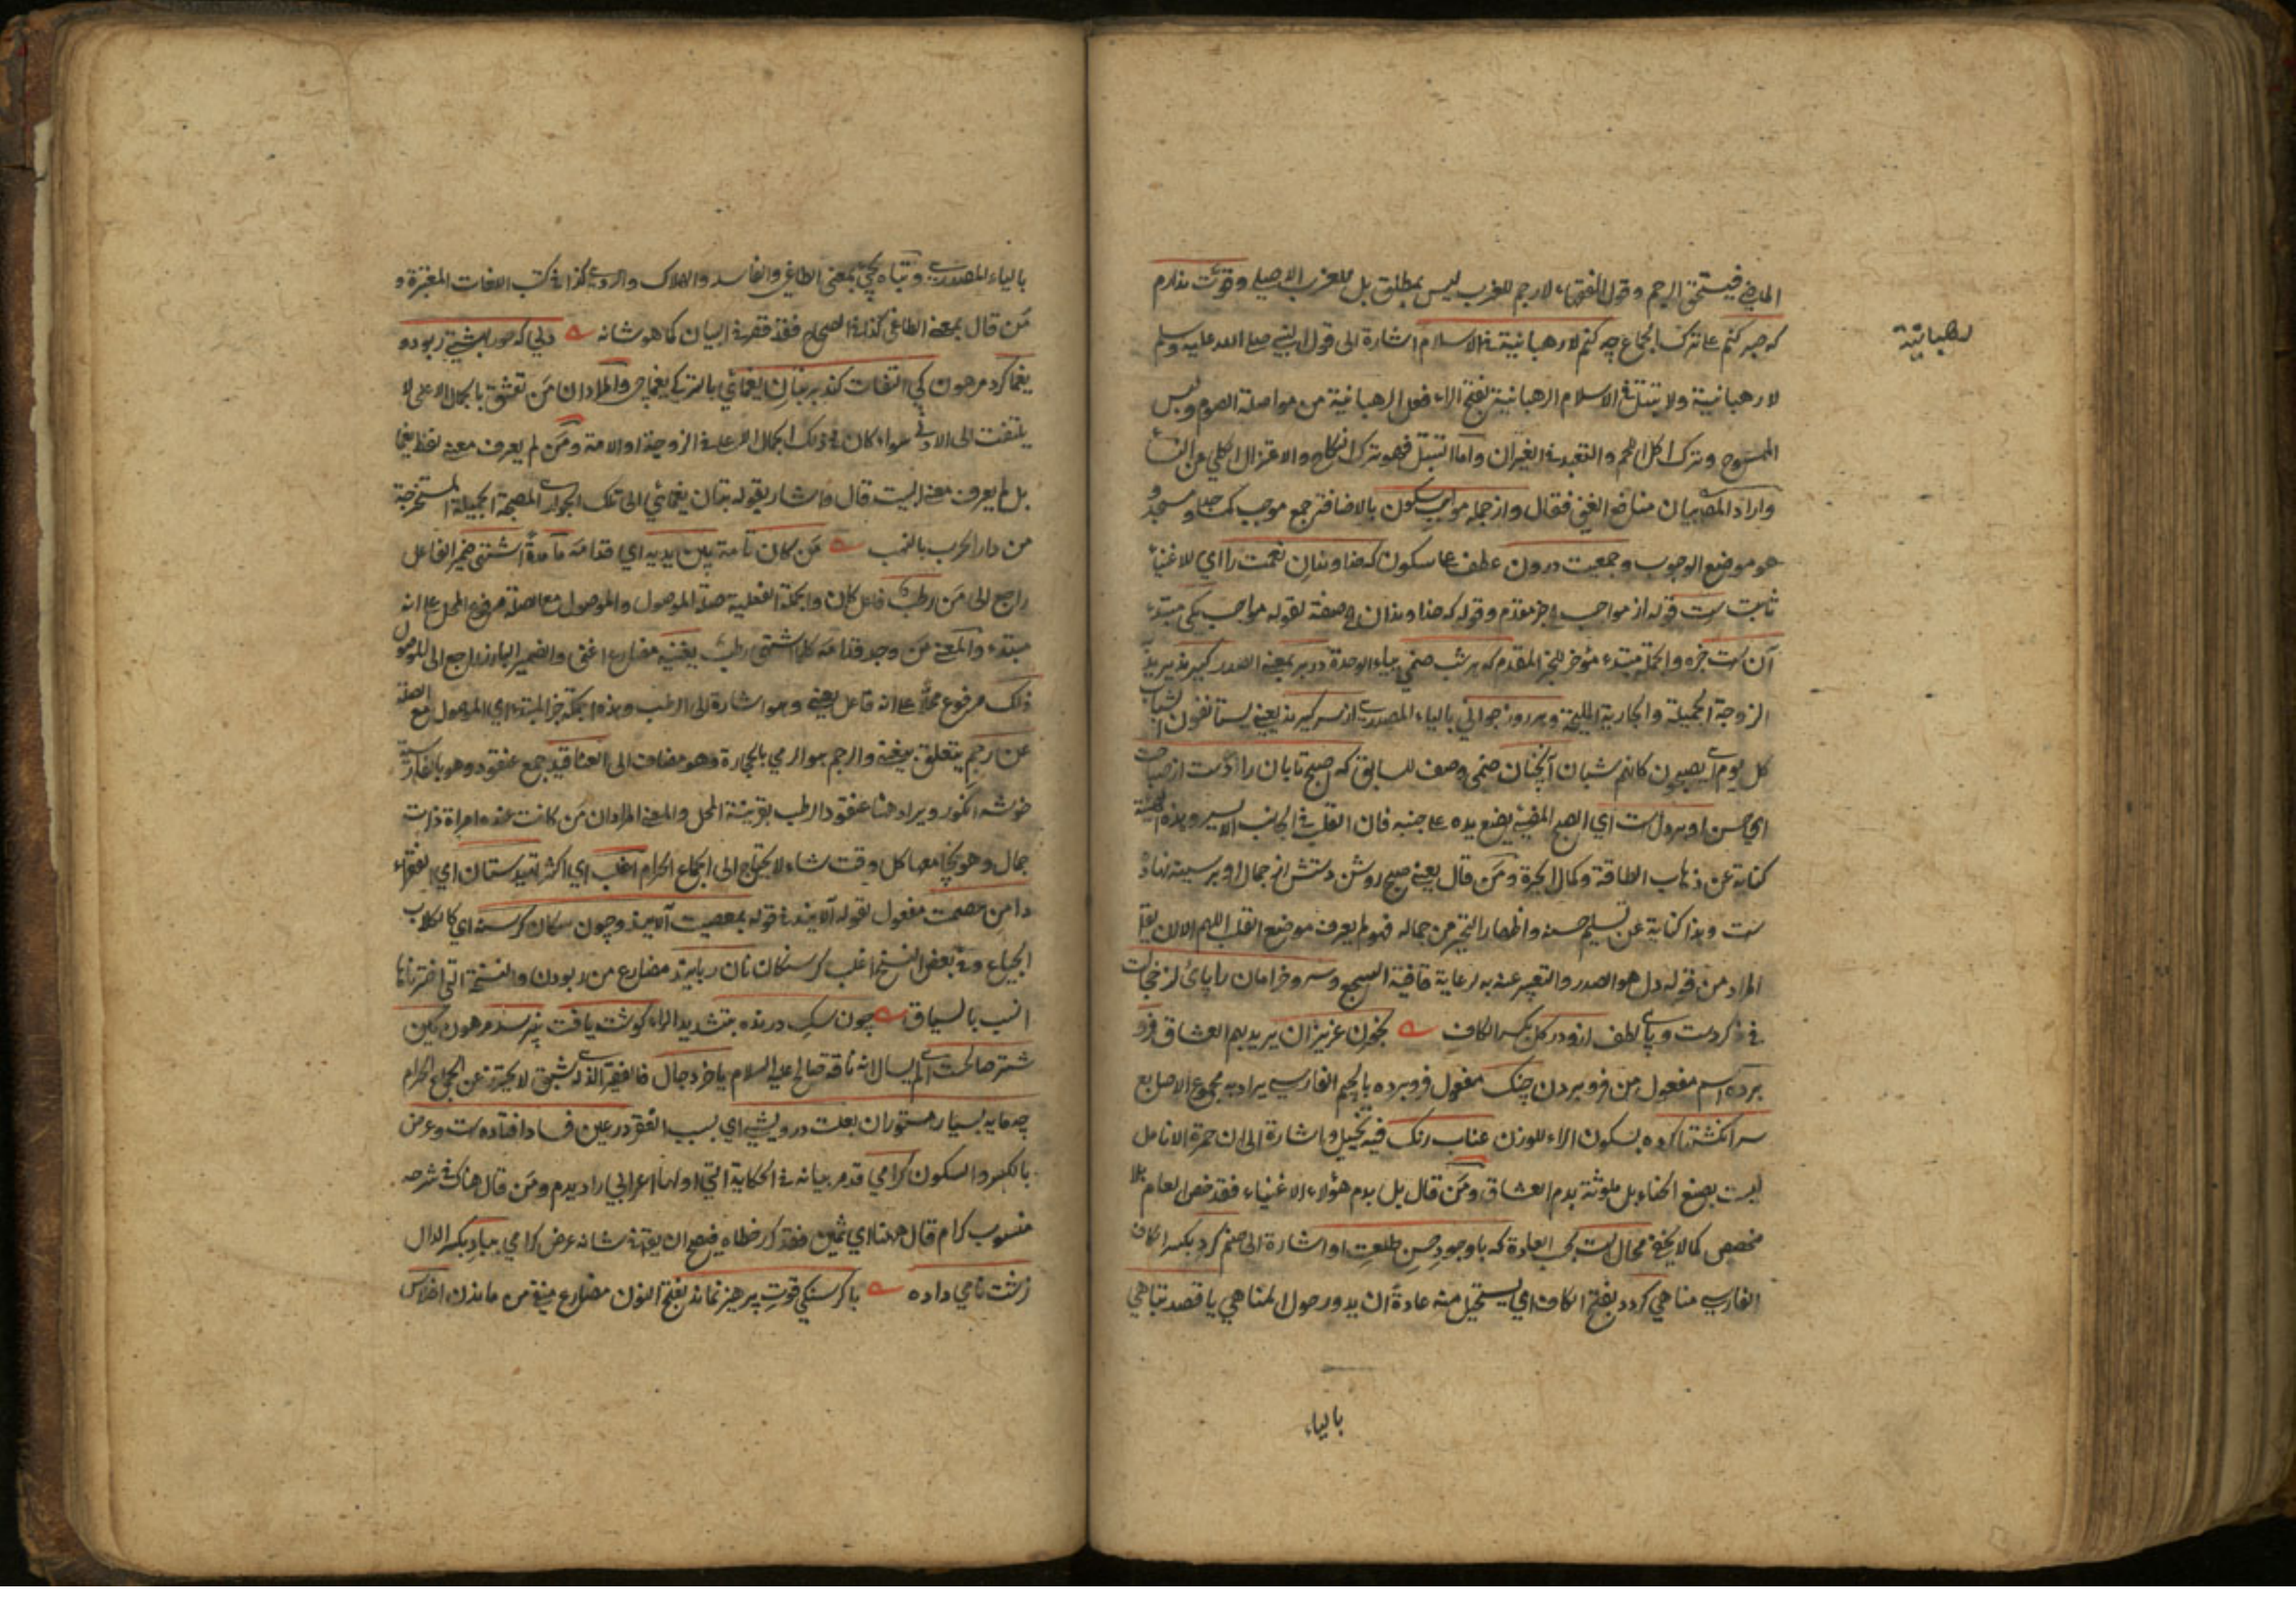 الماضي فيستحق الرجم وقول الفقهاء لا رجم للعزب ليس بمطلق بل للعزب الاصلي وقوت ندارم
که صبر کنم على ترك الجماع چه کنم لا رهبانية في الاسلام اشارة الى قول النبي صلى الله عليه وسلم
رهبانية
لا رهبانية ولا تبتل في الاسلام الرهبانية بفتح الراء فعل الرهبانية من مواصلة الصوم ولبس
المسوح وترك اكل اللحم والتعبد في الغيران واما التبتل فهو ترك النكاح والاعتزال الكلي عن النساء
واراد المص بيان منافع الغني فقال واز جمله مواجب سكون بالاضافة جمع موجب كمجلس ومسجد و
هو موضع الوجوب وجمعيت درون عطف على سكون كه خداوندان نعمت را اي للاغنياء
ثابت ست قوله از مواجب خبر مقدم وقوله كه خداوندان صفة لقوله مواجب يكى مبتدء
آن ست خبره والجملة مبتدء مؤخر للخبر المقدم كه هر شب صنمي بياء الوحدة در بر بمعنى الصدر كيرند يريد
الزوجة الجميلة والجارية المليحة وهر روز جواني بالياء المصدرية از سر كيرند يعني يستأنفون الشباب
كل يوم اي يصيرون كانهم شبان آنچنان صنمى وصف للسابق كه صبح تابان را دست از صباحت
اي حسن او بر دل ست اي الصبح المضيء يضع يده على جنبه فان القلب في الجانب الايسر وهذه الهيئة
كناية عن ذهاب الطاقة وكمال الحيرة ومن قال يعني صبح روشن دستش از جمال او بر سينه نهاد
ست وهذا كناية عن تسليم حسنه واظهار التحير من جماله فهو لم يعرف موضع القلب اللهم الا ان يقال
المراد من قوله دل هو الصدر والتعبير عنه به لرعاية قافية السجع وسرو خرامان را پاى از خجالت
في كردست وپاى لطف از ودر كل بكسر الكاف بخون عزيزان يريد بهم العشاق فرو
برده اسم مفعول من فرو بردن چنك مفعول فرو برده بالجيم الفارسي يراد به مجموع الاصابع
سر انكشتها كرده بسكون الراء للوزن عناب رنك فيه تخييل واشارة الى ان حمرة الانامل
ليست بصبغ الحناء بل ملوثة بدم العشاق ومن قال بل بدم هؤلاء الاغنياء فقد خص العام بلا
مخصص كما لا يخفى محال ست بحسب العادة كه با وجود حسن طلعت او اشارة الى صنم كرد بكسر الكاف
الفارسي مناهي كردد بفتح الكاف اي يستحيل منه عادة ان يدور حول المناهي يا قصد تباهي
بالياء
بالياء المصدرية وتباه يجيء بمعنى الطاغي والفاسد والهلاك والردي كذا في كتب اللغات المعتبرة و
من قال بمعنى الطاغي كذا في الصحاح فقد قصر في البيان كما هو شانه دلي كه حور بهشتي ربود و
يغما كرد مرهون كي التفات كند بر بتان يغمائي بالترك يغماچي والمراد ان من تعشق بالجمال الاعلى لا
يلتفت الى الادنى سواء كان في ذلك الجمال الاعلى في الزوجة او الامة ومن لم يعرف معنى لفظ يغما
بل لم يعرف معنى البيت قال واشار بقوله بتان يغمائي الى تلك الجوارى الصبيحة الجميلة المستخرجة
من دار الحرب بالنهب من كان ثابتة بين يديه اي قدامه ما مدة اشتهى ضمير الفاعل
راجع الى من رطب فاعل كان والجملة الفعلية صلة الموصول والموصول مع الصلة مرفوع المحل على انه
مبتدء والمعنى من وجد قدامه كلما اشتهى رطب يغنيه مضارع اغنى والضمير البارز راجع الى الموصول
ذلك مرفوع محلا على انه فاعل يغني وهو اشارة الى الرطب وهذه الجملة خبر المبتدء اي الموصول مع الصلة
عن رجم يتعلق بيغنيه والرجم هو الرمي بالحجارة وهو مضاف الى العناقيد جمع عنقود وهو بالفارسية
خوشه انكور ويراد هنا عنقود الرطب بقرينة المحل والمعنى المراد ان من كانت عنده امراة ذات
جمال وهو يجامعها كل وقت شاء لا يحتاج الى الجماع الحرام اغلب اي اكثر تهيدستان اي الفقراء
دامن عصمت مفعول لقوله آلايند في قوله بمعصيت آلايند وچون سكان كرسنه اي كالكلاب
الجياع وفي بعض النسخ اغلب كرسنكان نان ربايند مضارع من ربودن والنسخة التي اخترناها
انسب بالسياق چون سك درنده بتشديد الراء كوشت يافت نپرسد مرهون كين
شتر صالحست اي لم يسال انه ناقة صالح عليه السلام يا خر دجال فالفقير الذي له شبق لا يحترز عن الجماع الحرام
چه مايه بسيار مستوران بعلت درويشي اي بسبب الفقر در عين فساد افتاده ست وعرض
بالكسر والسكون كرامي قد مر بيانه في الحكاية التي اولها اعرابي را ديدم ومن قال هناك في شرحه
منسوب كرام قال ههنا اي ثمين فقد كرر خطاه فيصح ان يقال في شانه عرض كرامي بباد بكسر الدال
زشت نامي داده با كرسنكي قوت پرهيز نماند بفتح النون مضارع منفي من ماندن افلاس